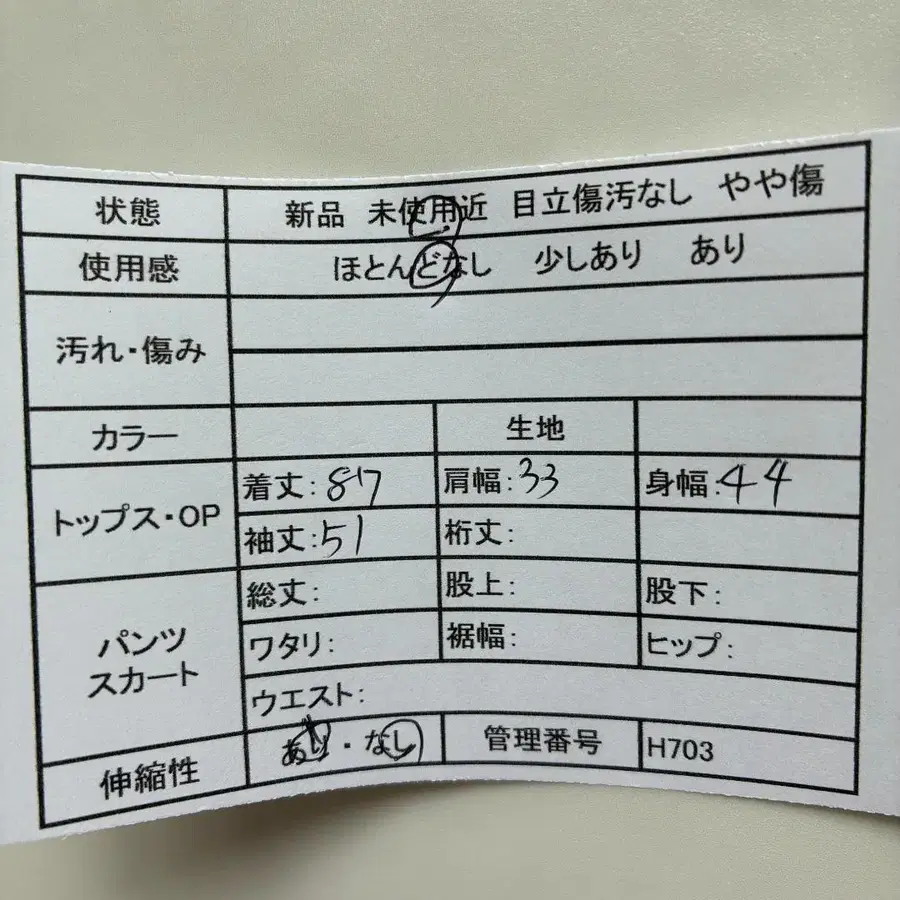 状態 新品 未使用近 目立傷汚なし やや傷
使用感 ほとんどなし 少しあり あり
汚れ・傷み
カラー 生地
トップス・OP 着丈:87 肩幅:33 身幅:44
袖丈:51 裄丈:
パンツ スカート 総丈: 股上: 股下:
ワタリ: 裾幅: ヒップ:
ウエスト:
伸縮性 あり・なし 管理番号 H703